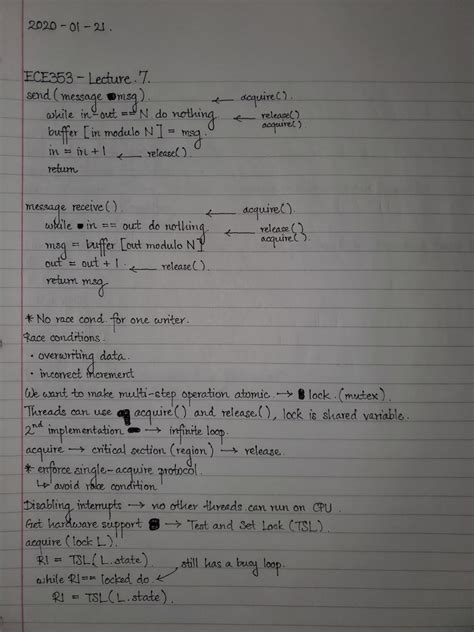 2020-01-21.
ECE353 - Lecture 7.
send(message msg). ← acquire().
while in-out == N do nothing ← release()
acquire()
buffer[in modulo N] = msg.
in = in + 1 ← release().
return
message receive(). ← acquire().
while in == out do nothing. ← release()
acquire().
msg = buffer[out modulo N]
out = out + 1. ← release()
return msg
* No race cond for one writer.
Race conditions.
· overwriting data.
· incorrect increment
We want to make multi-step operation atomic → lock. (mutex).
Threads can use acquire() and release(), lock is shared variable.
2nd implementation → infinite loop.
acquire → critical section (region) → release.
* enforce single-acquire protocol.
↳ avoid race condition
Disabling interrupts → no other threads can run on CPU.
Get hardware support → Test and Set Lock (TSL).
acquire(lock L).
R1 = TSL(L.state). still has a busy loop.
while R1== locked do ←
R1 = TSL(L.state).